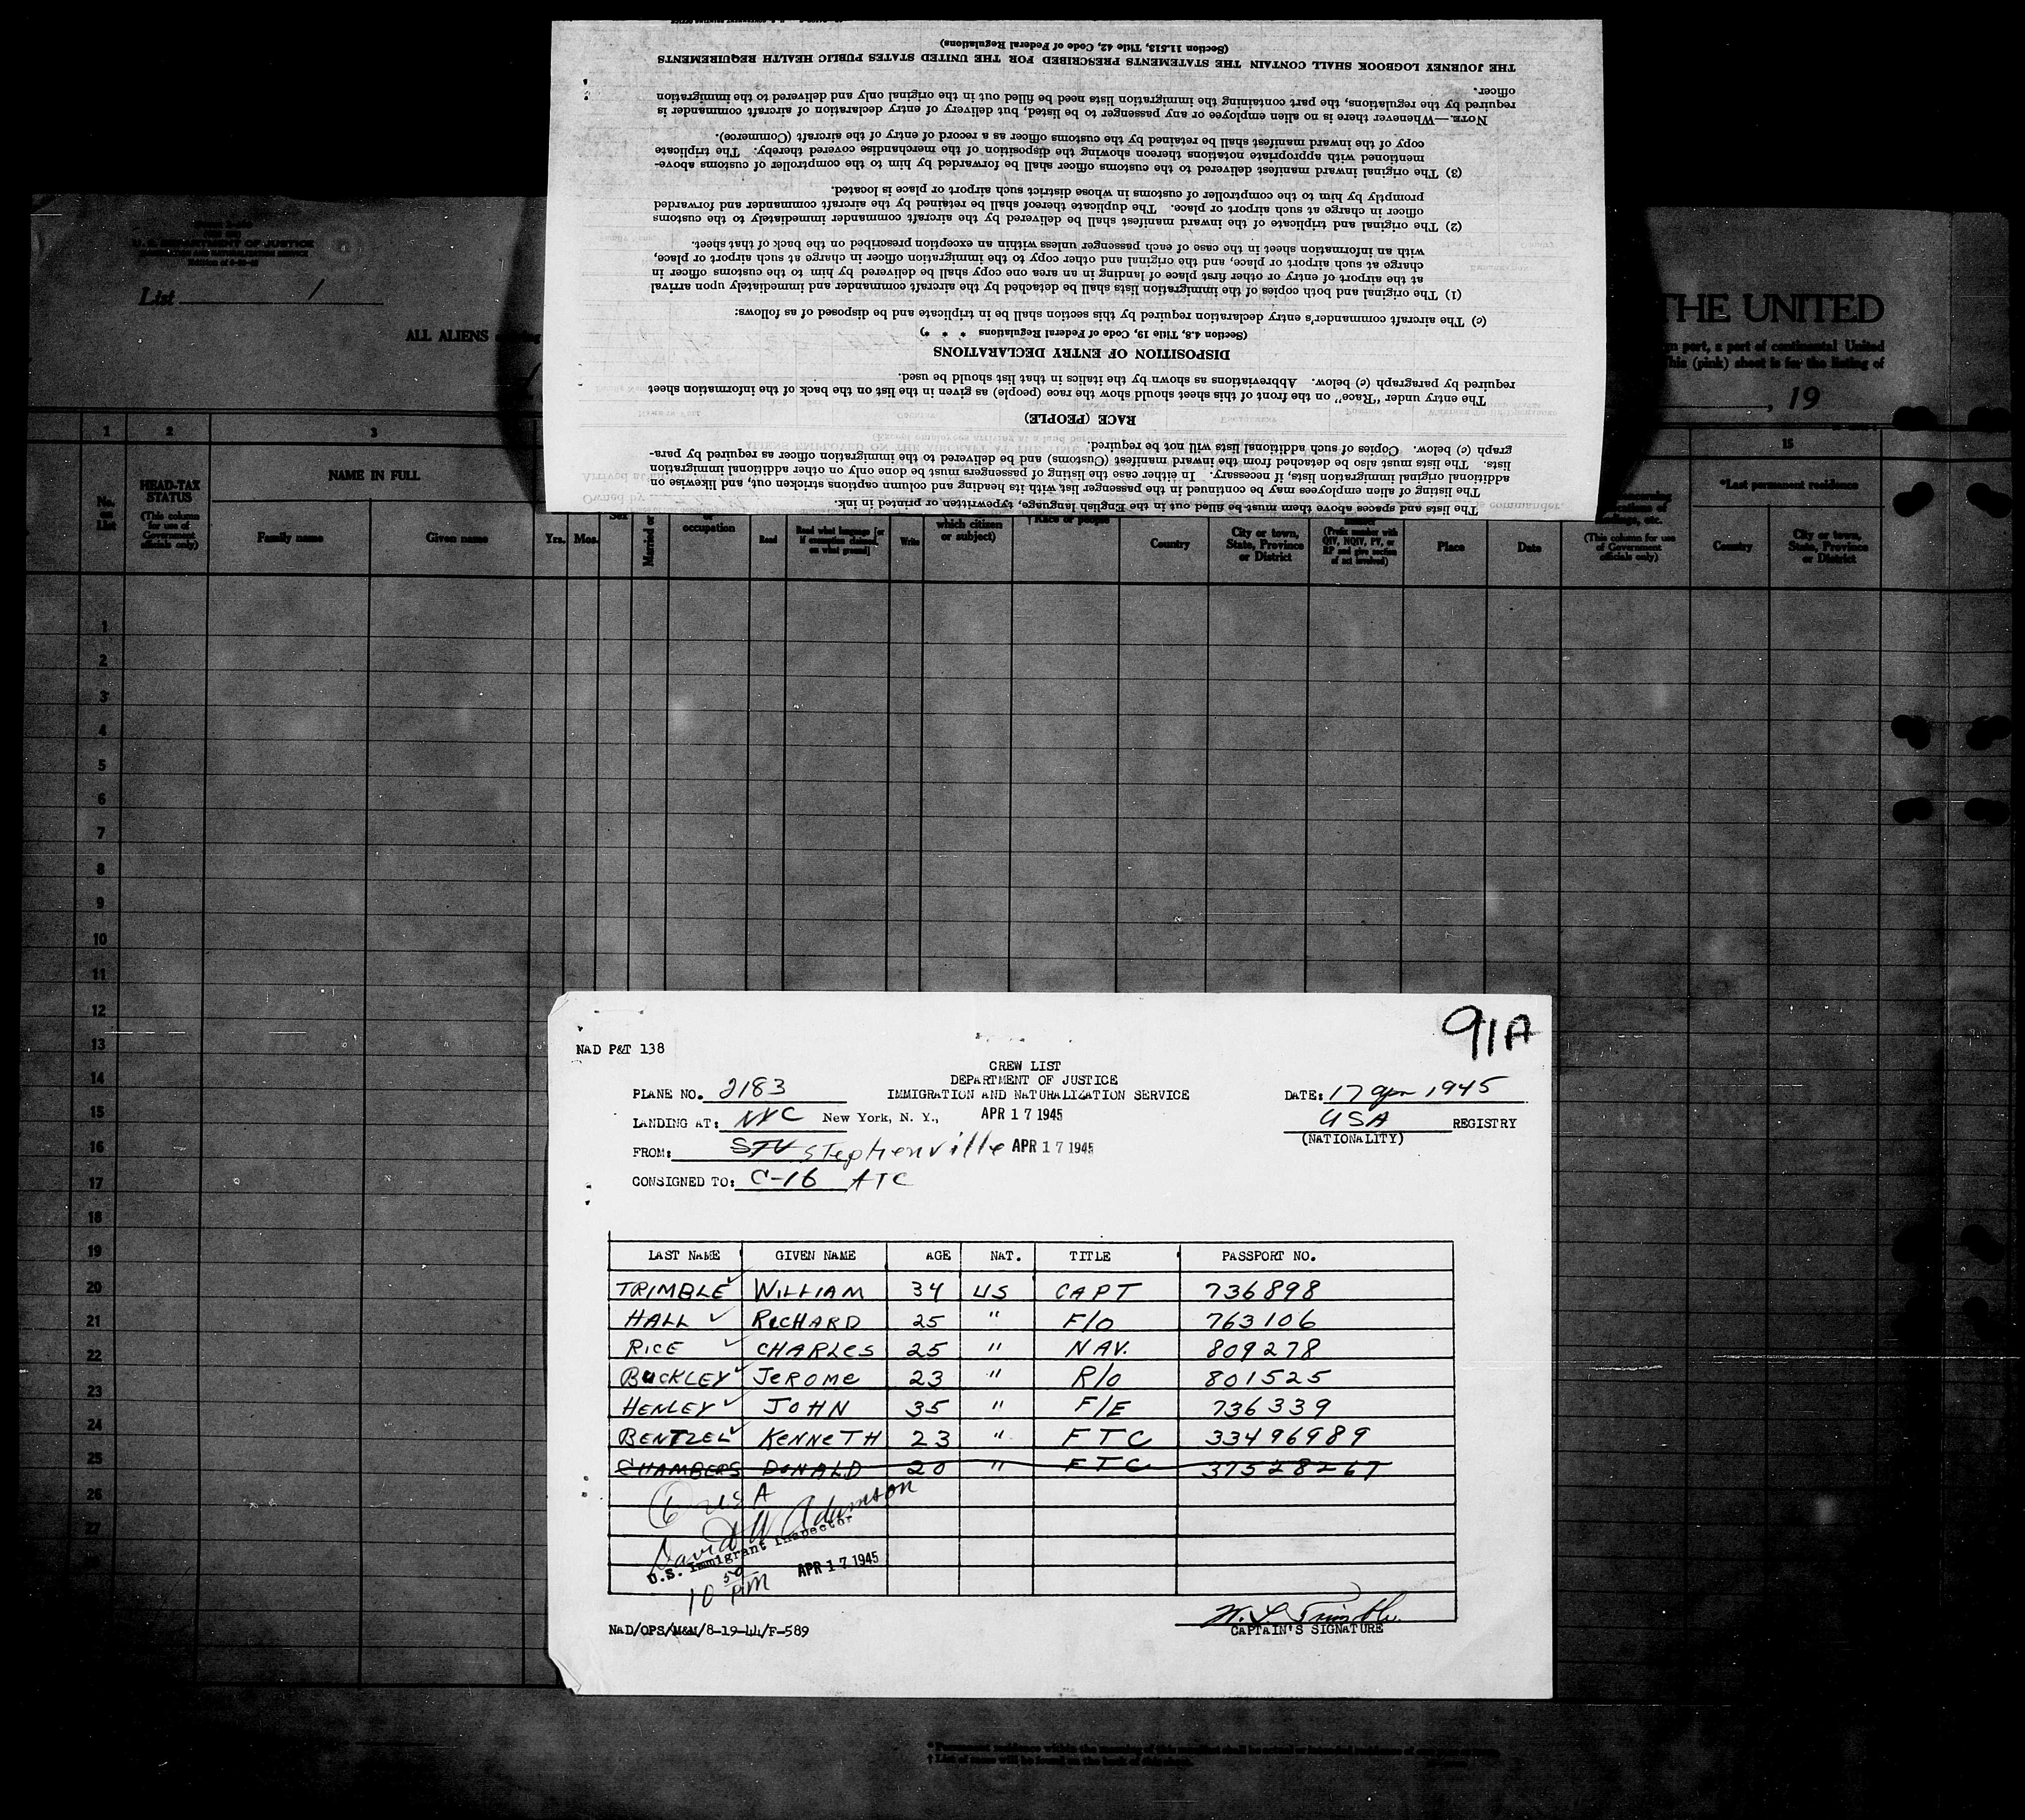 (Section 11.513, Title 42, Code of Federal Regulations)
THE JOURNEY LOGBOOK SHALL CONTAIN THE STATEMENTS PRESCRIBED FOR THE UNITED STATES PUBLIC HEALTH REQUIREMENTS
officer.
required by the regulations, the part containing the immigration lists need be filled out in the original only and delivered to the immigration
NOTE.—Whenever there is no alien employee or any passenger to be listed, but delivery of entry declaration of aircraft commander is
copy of the inward manifest shall be retained by the customs officer as a record of entry of the aircraft (Commerce).
mentioned with appropriate notations thereon showing the disposition of the merchandise covered thereby. The triplicate
(3) The original inward manifest delivered to the customs officer shall be forwarded by him to the comptroller of customs above-
promptly by him to the comptroller of customs in whose district such airport or place is located.
officer in charge at such airport or place. The duplicate thereof shall be retained by the aircraft commander and forwarded
(2) The original and triplicate of the inward manifest shall be delivered by the aircraft commander immediately to the customs
with an information sheet in the case of each passenger unless within an exception prescribed on the back of that sheet.
charge at such airport or place, and the original and other copy to the immigration officer in charge at such airport or place,
at the airport of entry or other first place of landing in an area one copy shall be delivered by him to the customs officer in
(1) The original and both copies of the immigration lists shall be detached by the aircraft commander and immediately upon arrival
(c) The aircraft commander's entry declaration required by this section shall be in triplicate and be disposed of as follows:
(Section 4.8, Title 19, Code of Federal Regulations * * *)
DISPOSITION OF ENTRY DECLARATIONS
required by paragraph (e) below. Abbreviations as shown by the italics in that list should be used.
The entry under "Race" on the front of this sheet should show the race (people) as given in the list on the back of the information sheet
RACE (PEOPLE)
graph (c) below. Copies of such additional lists will not be required.
lists. The lists must also be detached from the inward manifest (Customs) and be delivered to the immigration officer as required by para-
additional original immigration lists, if necessary. In either case the listing of passengers must be done only on other additional immigration
The listing of alien employees may be continued in the passenger list with its heading and column captions stricken out, and likewise on
The lists and spaces above them must be filled out in the English language, typewritten or printed in ink.
U. S. DEPARTMENT OF JUSTICE
List 1
THE UNITED
ALL ALIENS
port, a port of continental United
This (pink) sheet is for the listing of
, 19
1 2 3 15
HEAD-TAX STATUS
(This column for use of Government officials only)
NAME IN FULL
*Last permanent residence
No. on List
Family name Given name Yrs. Mos. Sex Married or
occupation Read Read what language [or if exemption claimed, on what ground] Write
which citizen or subject) Race or people
Country City or town, State, Province or District
(Prefix number with QIV, NQIV, PV, or RP and give section of act involved)
Place Date
(This column for use of Government officials only)
Country City or town, State, Province or District
1
2
3
4
5
6
7
8
9
10
11
12
13
14
15
16
17
18
19
20
21
22
23
24
25
26
27
91A
NAD P&T 138
CREW LIST
DEPARTMENT OF JUSTICE
IMMIGRATION AND NATURALIZATION SERVICE
PLANE NO. 2183
DATE: 17 Apr 1945
LANDING AT: NYC New York, N. Y., APR 17 1945
USA REGISTRY
(NATIONALITY)
FROM: STV Stephenville APR 17 1945
CONSIGNED TO: C-16 ATC
LAST NAME GIVEN NAME AGE NAT. TITLE PASSPORT NO.
TRIMBLE WILLIAM 34 US CAPT 736898
HALL RICHARD 25 " F/O 763106
RICE CHARLES 25 " NAV. 809278
BUCKLEY JEROME 23 " R/O 801525
HENLEY JOHN 35 " F/E 736339
BENTZEL KENNETH 23 " FTC 33496989
CHAMBERS DONALD 20 " FTC 37528267
6 USA
David W Adamson
U.S. Immigrant Inspector
APR 17 1945
10 50 PM
W. L. Trimble
CAPTAIN'S SIGNATURE
NAD/OPS/M&M/8-19-44/F-589